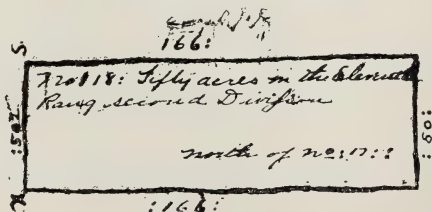 166:
S.
No: 18: Fifty acres in the Eleventh
Rang second Division
north of no: 17::
:80:
:166: